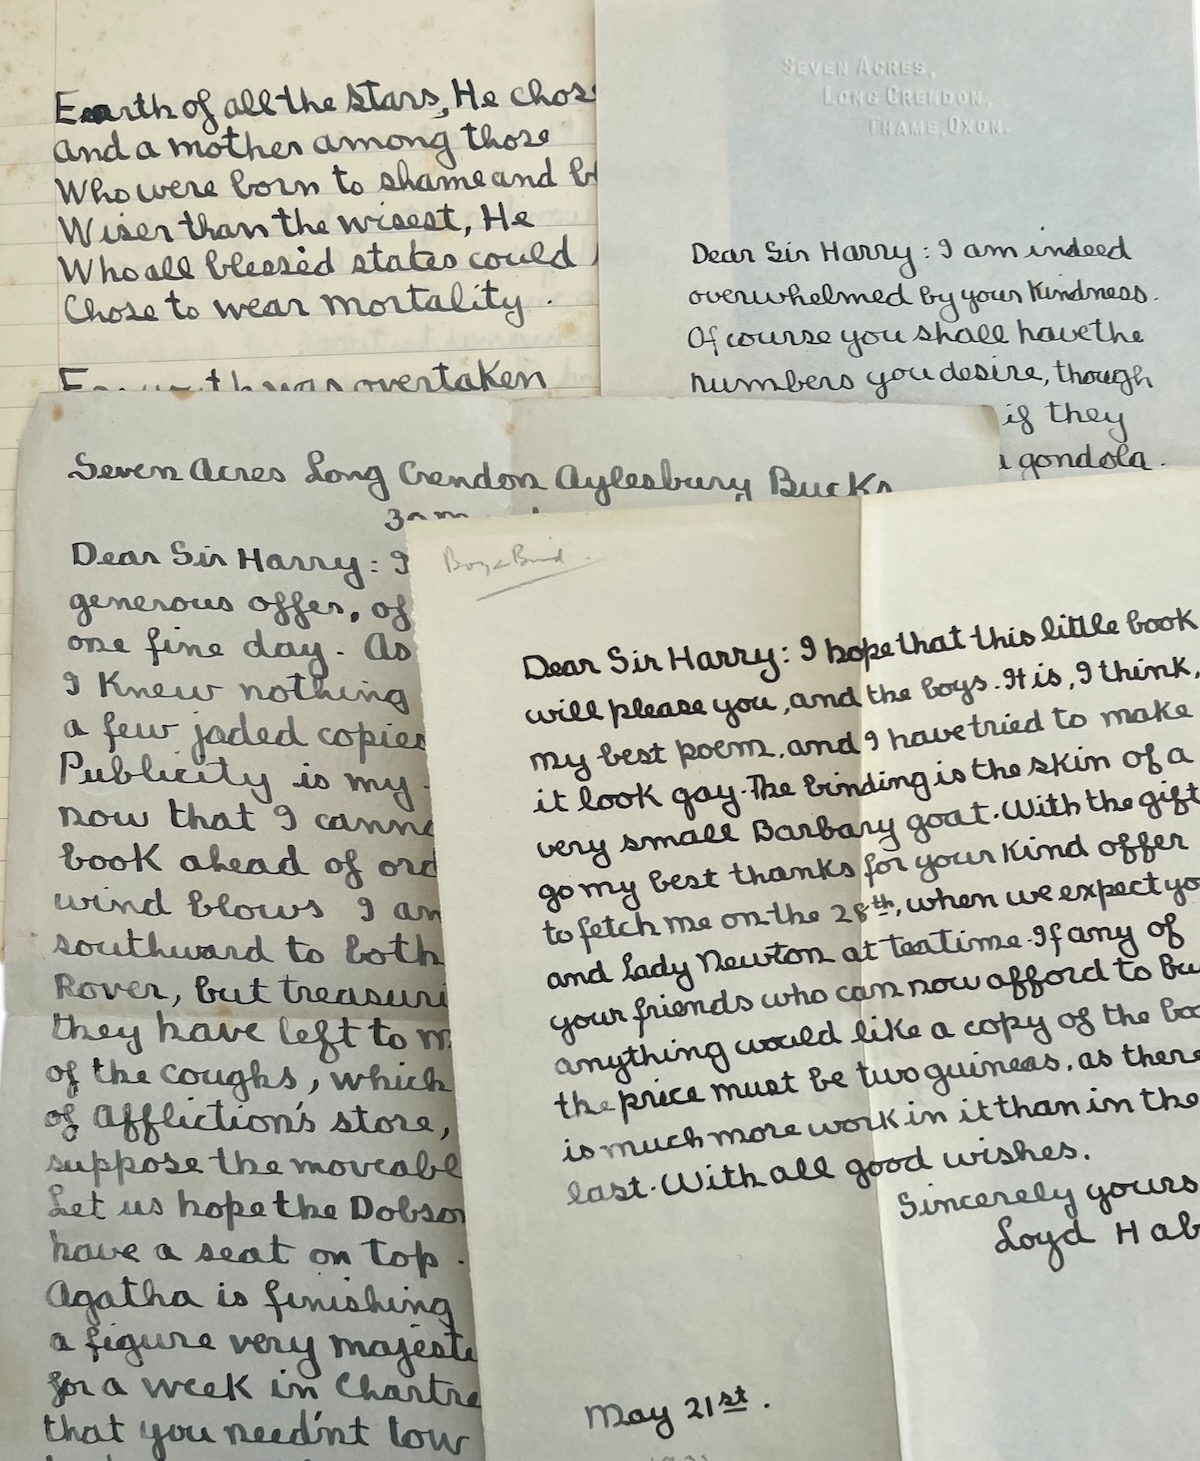 Earth of all the stars, He chose
And a mother among those
Who were born to shame and
Wiser than the wisest, He
Who all blessèd states could
Chose to wear mortality.
was overtaken
SEVEN ACRES,
LONG CRENDON,
THAME, OXON.
Dear Sir Harry: I am indeed
overwhelmed by your kindness.
Of course you shall have the
numbers you desire, though
if they
gondola.
Seven Acres Long Crendon Aylesbury Bucks
Dear Sir Harry: I
generous offer, of
one fine day. As
I Knew nothing
a few jaded copies
Publicity is my
now that I
book ahead of
wind blows I am
southward to both
Rover, but
they have left to
of the coughs, which
of Affliction's store,
suppose the
Let us hope the Dobson
have a seat on top.
Agatha is finishing
a figure very
for a week in
that you need'nt
Boy & Bird
Dear Sir Harry: I hope that this little book
will please you, and the boys. It is, I think,
my best poem, and I have tried to make
it look gay. The binding is the skin of a
very small Barbary goat. With the gift
go my best thanks for your kind offer
to fetch me on the 28th, when we expect you
and Lady Newton at teatime. If any of
your friends who can now afford to buy
anything would like a copy of the
the price must be two guineas, as there
is much more work in it than in the
last. With all good wishes.
Sincerely yours
Loyd Hab
May 21st.